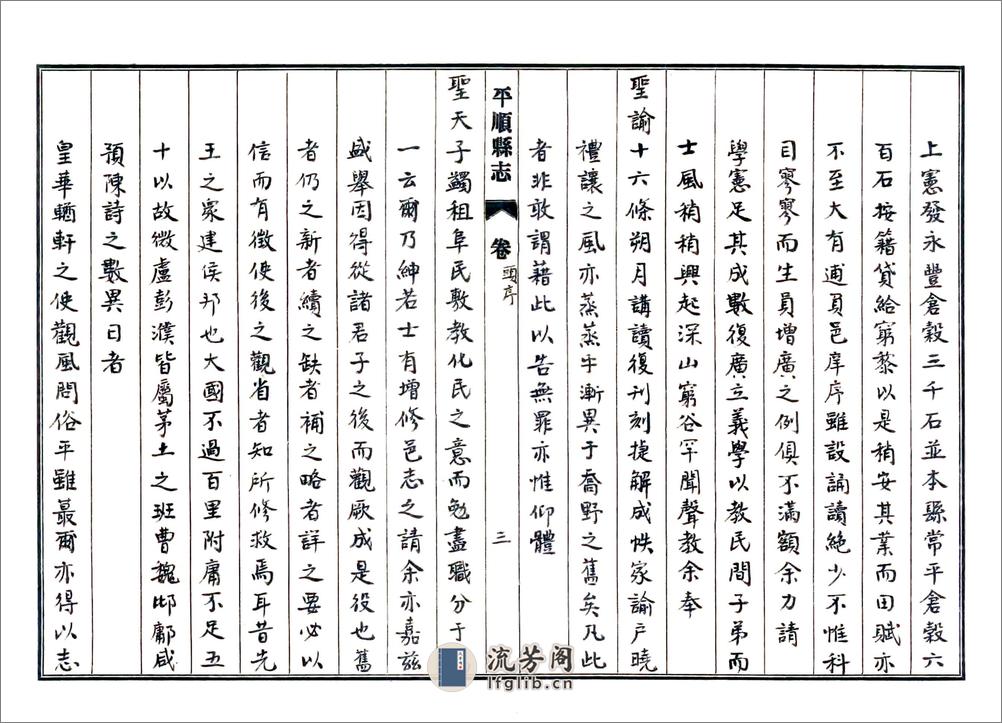 上憲發永豐倉穀三千石並本縣常平倉穀六
百石按籍貸給窮黎以是稍安其業而田賦亦
不至大有逋員邑庠序雖設誦讀絶少不惟科
目寥寥而生員增廣之例俱不滿額余力請
學憲足其成數復廣立義學以教民間子弟而
士風稍稍興起深山窮谷罕聞聲教余奉
聖諭十六條朔月講讀復刊刻捷解成帙家諭户曉
禮讓之風亦蒸蒸乎漸異于喬野之舊矣凡此
者非敢謂藉此以告無罪亦惟仰體
平順縣志 卷 頭序 三
聖天子蠲租阜民敷教化民之意而勉盡職分于
一云爾乃紳若士有增修邑志之請余亦嘉兹
盛舉因得從諸君子之後而觀厥成是役也舊
者仍之新者續之缺者補之略者詳之要必以
信而有徵使後之觀省者知所修救焉耳昔先
王之衆建侯邦也大國不過百里附庸不足五
十以故微盧彭濮皆屬茅土之班曹魏邶鄘咸
預陳詩之數異日者
皇華輶軒之使觀風問俗平雖蕞爾亦得以志
流芳阁
lfglib.cn